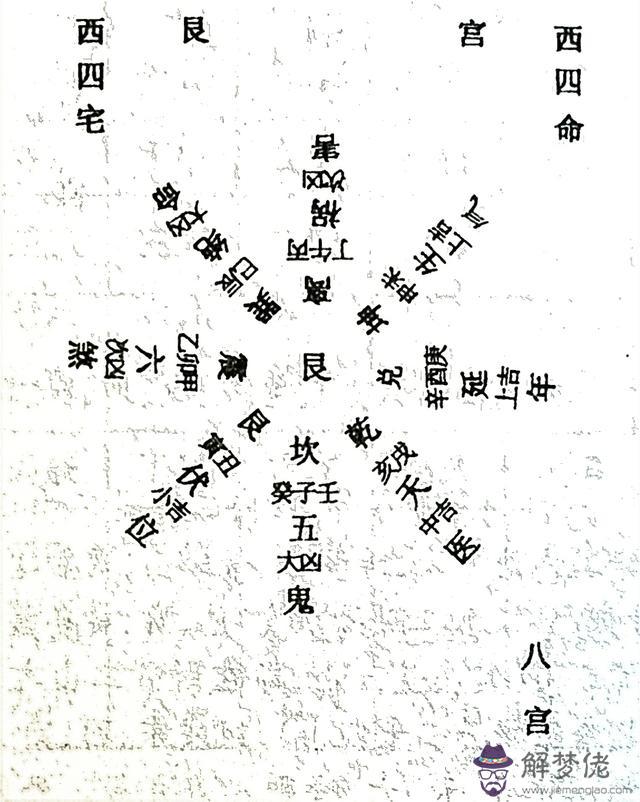 西四宅
艮
宫
西四命
离
丁午丙
祸
次凶
害
坤
申未
生
上吉
兑
辛酉庚
延
上吉
年
乾
亥戌
天
中吉
医
坎
癸子壬
五
大凶
鬼
艮
寅丑
伏
小吉
位
震
乙卯甲
六
次凶
煞
巽
巳辰
绝
大凶
命
艮
八宫
解梦佬
www.jiemenglao.com